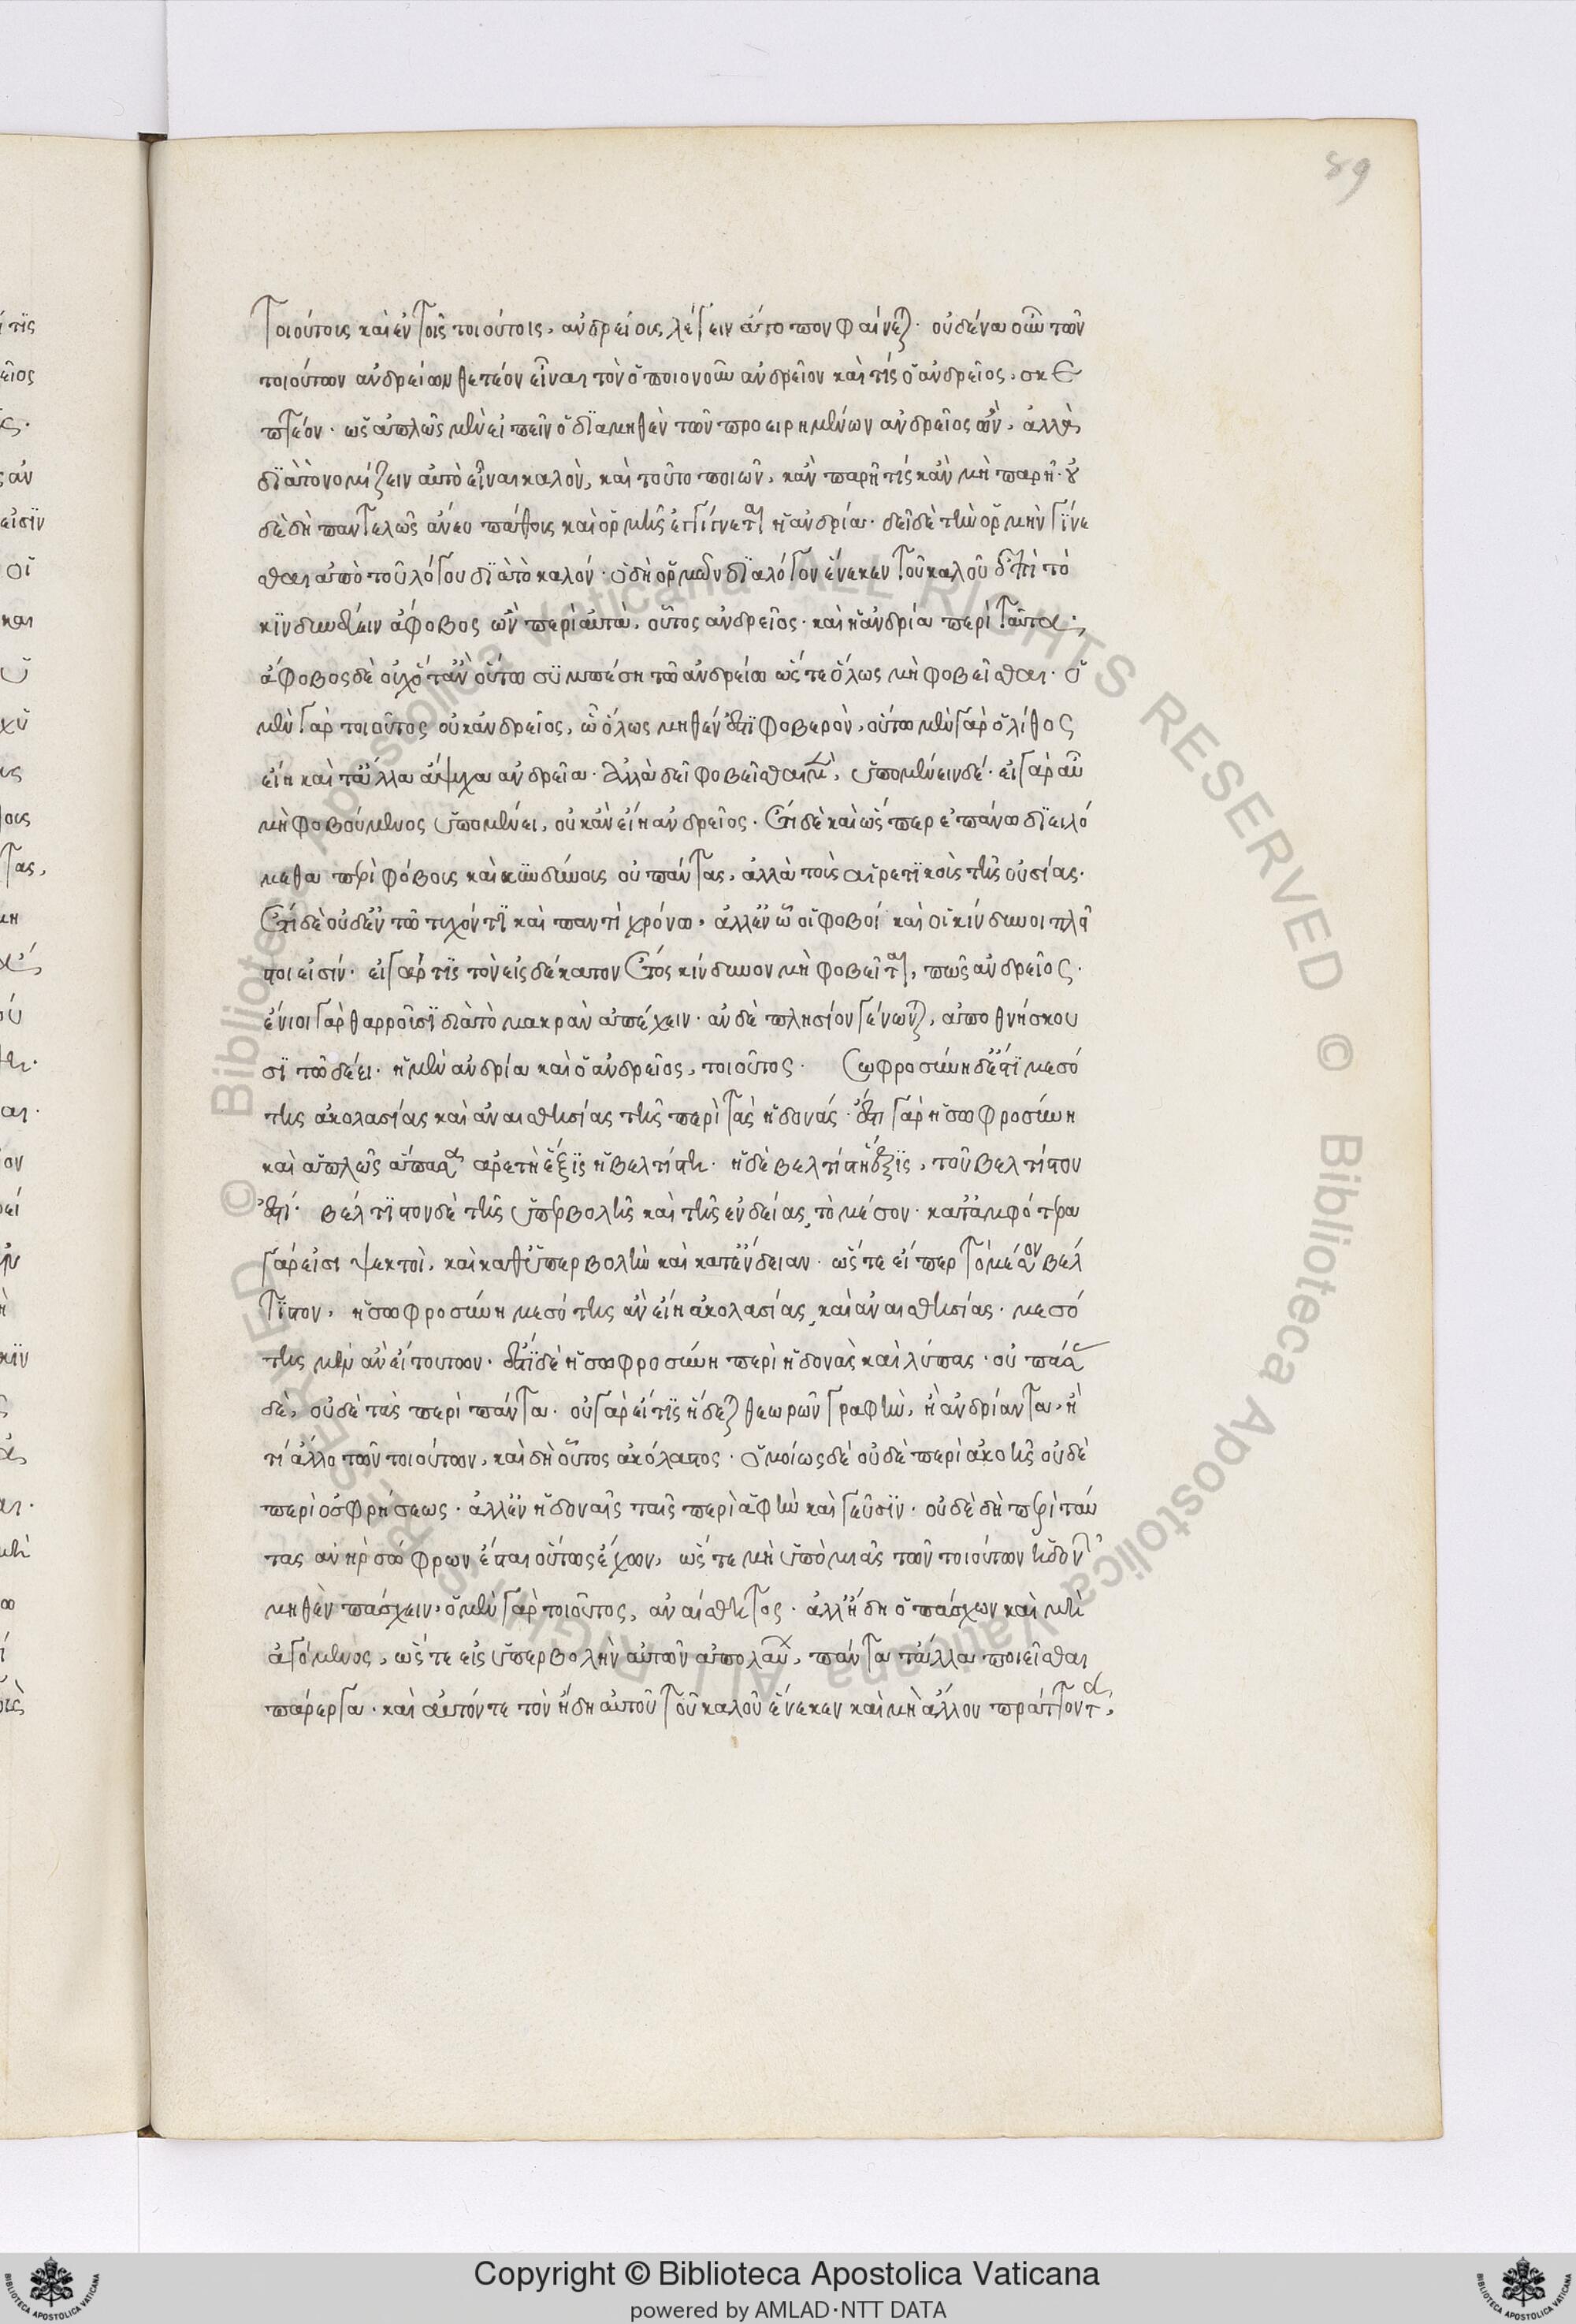 89
τοιούτοις καὶ ἐν τοῖς τοιούτοις, ἀνδρείους λέγειν ἄτοπον φαίνεται· οὐδένα οὖν τῶν
τοιούτων ἀνδρείων θετέον εἶναι τὸν ὁποῖον οὖν ἀνδρεῖον καὶ τίς ὁ ἀνδρεῖος, σκε
πτέον· ὡς ἁπλῶς μὲν εἰπεῖν ὁ διὰ μηθὲν τῶν προειρημένων ἀνδρεῖος ὤν, ἀλλὰ
διὰ τὸ νομίζειν αὐτὸ εἶναι καλὸν, καὶ τοῦτο ποιῶν, κἂν παρῇ τίς κἂν μὴ παρῇ· οὐ
δὲ δὴ παντελῶς ἄνευ πάθους καὶ ὁρμῆς ἐγγίνεται ἡ ἀνδρία· δεῖ δὲ τὴν ὁρμὴν γίνε
σθαι ἀπὸ τοῦ λόγου διὰ τὸ καλόν· ὁ δὴ ὁρμῶν διὰ λόγον ἕνεκεν τοῦ καλοῦ ἐπὶ τὸ
κινδυνεύειν ἄφοβος ὢν περὶ αὐτὰ, οὗτος ἀνδρεῖος· καὶ ἡ ἀνδρία περὶ ταῦτα·
ἄφοβος δὲ οὐχ ὅταν οὕτω συμπέσῃ τῷ ἀνδρείῳ ὥστε ὅλως μὴ φοβεῖσθαι· ὁ
μὲν γὰρ τοιοῦτος οὐκ ἀνδρεῖος, ᾧ ὅλως μηθέν ἐστι φοβερὸν, οὕτω μὲν γὰρ ὁ λίθος
εἴη καὶ τἄλλα ἄψυχα ἀνδρεῖα· ἀλλὰ δεῖ φοβεῖσθαι μὲν, ὑπομένειν δέ· εἰ γὰρ αὖ
μὴ φοβούμενος ὑπομένει, οὐκ ἂν εἴη ἀνδρεῖος· ἔτι δὲ καὶ ὥσπερ ἐπάνω διειλό
μεθα περὶ φόβους καὶ κινδύνους οὐ πάντας, ἀλλὰ τοὺς αἱρετικοὺς τῆς οὐσίας·
ἔτι δὲ οὐδ' ἐν τῷ τυχόντι καὶ παντὶ χρόνῳ, ἀλλ' ἐν ᾧ οἱ φοβοί καὶ οἱ κίνδυνοι πλη
σίοι εἰσίν· εἰ γάρ τις τὸν εἰς δέκατον ἔτος κίνδυνον μὴ φοβεῖται, πῶς ἀνδρεῖος·
ἔνιοι γὰρ θαρροῦσι διὰ τὸ μακρὰν ἀπέχειν· ἂν δὲ πλησίον γένωνται, ἀποθνήσκου
σι τῷ δέει· ἡ μὲν ἀνδρία καὶ ὁ ἀνδρεῖος, τοιοῦτος· Σωφροσύνη δέ ἐστι μεσό
της ἀκολασίας καὶ ἀναισθησίας τῆς περὶ τὰς ἡδονάς· ἔστι γὰρ ἡ σωφροσύνη
καὶ ἁπλῶς ἅπασα ἀρετὴ ἕξις ἡ βελτίστη· ἡ δὲ βελτίστη ἕξις, τοῦ βελτίστου
ἐστί· βέλτιστον δὲ τῆς ὑπερβολῆς καὶ τῆς ἐνδείας, τὸ μέσον· κατ' ἀμφότερα
γάρ εἰσι ψεκτοὶ, καὶ καθ' ὑπερβολὴν καὶ κατ' ἔνδειαν· ὥστε εἴπερ τὸ μέσον βέλ
τιστον, ἡ σωφροσύνη μεσότης ἂν εἴη ἀκολασίας, καὶ ἀναισθησίας· μεσό
της μὲν ἂν εἴη τούτων· ἔστι δὲ ἡ σωφροσύνη περὶ ἡδονὰς καὶ λύπας· οὐ πάσας
δὲ, οὐδὲ τὰς περὶ πάντα· οὐ γὰρ εἴ τις ἥδεται θεωρῶν γραφὴν, ἢ ἀνδριάντα, ἤ
τι ἄλλο τῶν τοιούτων, καὶ δὴ οὗτος ἀκόλαστος· ὁμοίως δὲ οὐδὲ περὶ ἀκοῆς οὐδὲ
περὶ ὀσφρήσεως· ἀλλ' ἐν ἡδοναῖς ταῖς περὶ ἁφὴν καὶ γεῦσιν· οὐδὲ δὴ περὶ ταύ
τας ἀνὴρ σώφρων ἔσται οὕτως ἔχων, ὥστε μὴ ὑπὸ μιᾶς τῶν τοιούτων ἡδονῶν
μηθὲν πάσχειν· ὁ μὲν γὰρ τοιοῦτος, ἀναίσθητος· ἀλλ' ἤδη ὁ πάσχων καὶ μὴ
ἀγόμενος, ὥστε εἰς ὑπερβολὴν αὐτῶν ἀπολαύων, πάντα τἄλλα ποιεῖσθαι
πάρεργα· καὶ αὐτόν τε τὸν ἤδη αὐτοῦ τοῦ καλοῦ ἕνεκεν καὶ μὴ ἄλλου πράττοντα,
© Biblioteca Apostolica Vaticana ALL RIGHTS RESERVED
Copyright © Biblioteca Apostolica Vaticana
powered by AMLAD·NTT DATA